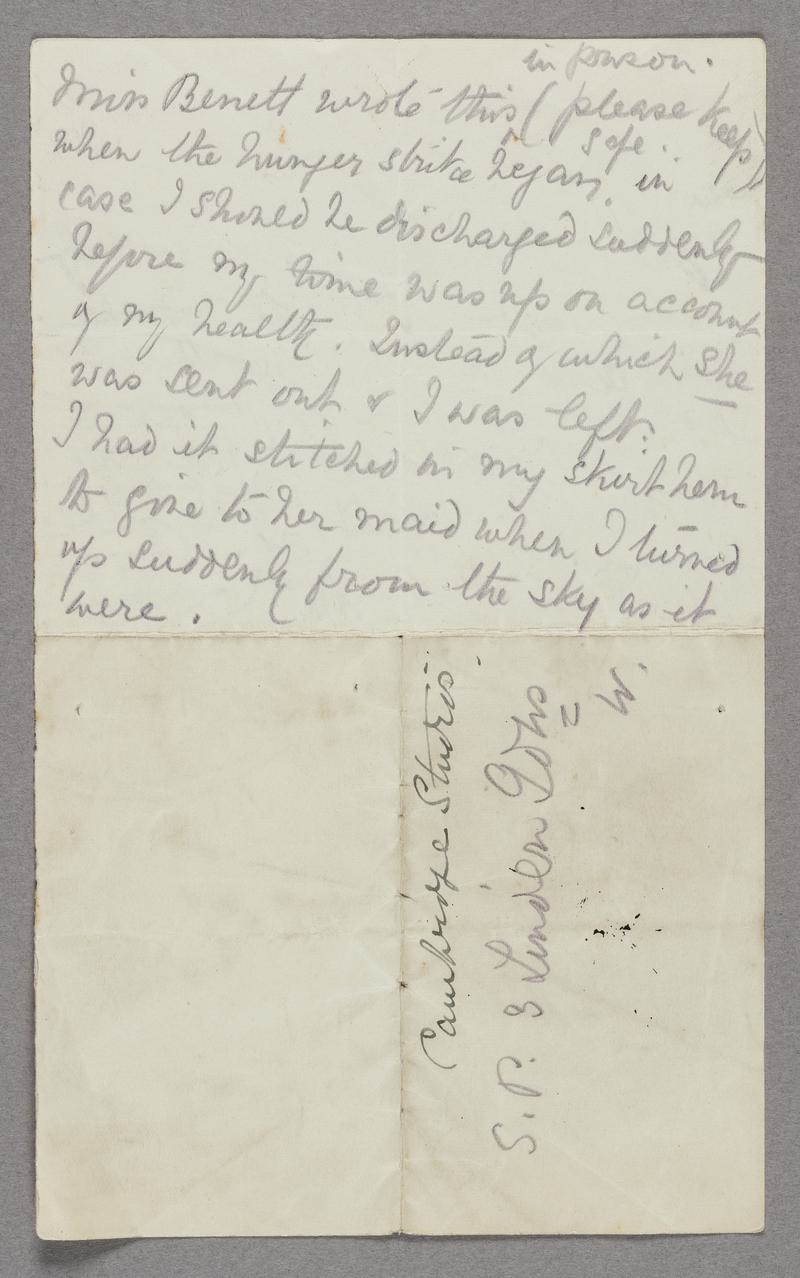 in prison.
Miss Benett wrote this (please keep
safe.)
when the hunger strike began, in
case I should be discharged suddenly
before my time was up on account
of my health. Instead of which she
was sent out & I was left.
I had it stitched in my skirt hem
to give to her maid when I turned
up suddenly from the sky as it
were.
Cambridge Studios.
S. P. 3 Linden Gdns
W.